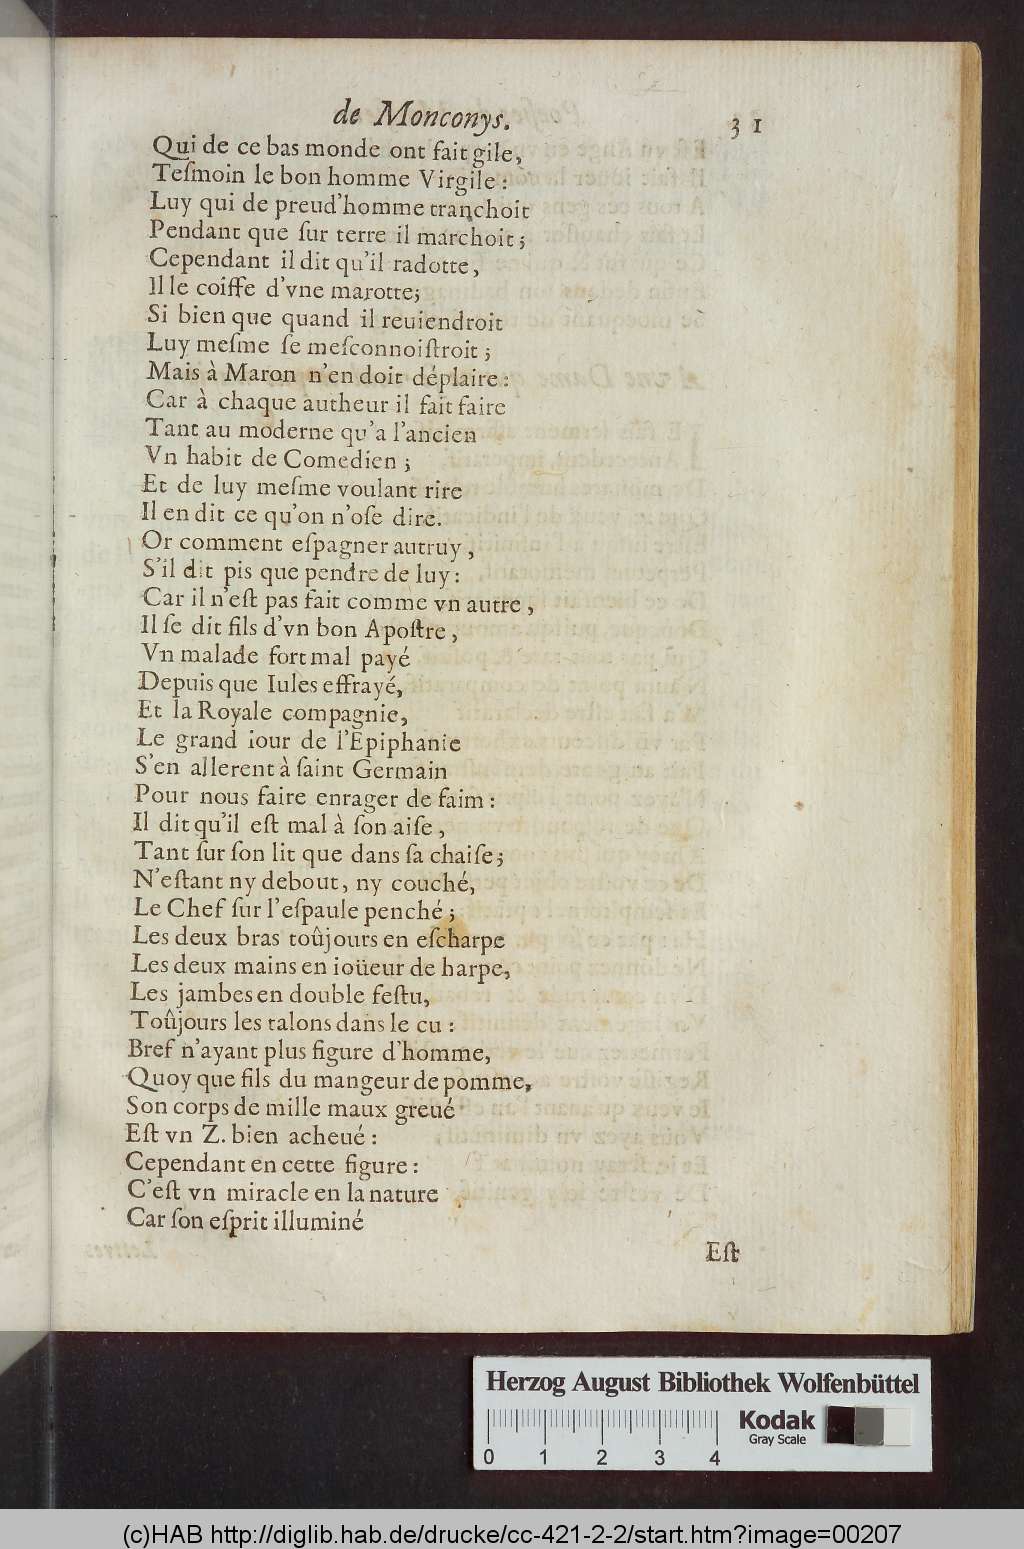 de Monconys. 31
Qui de ce bas monde ont fait gile,
Teſmoin le bon homme Virgile :
Luy qui de preud'homme tranchoit
Pendant que ſur terre il marchoit ;
Cependant il dit qu'il radotte,
Il le coiffe d'vne marotte;
Si bien que quand il reuiendroit
Luy meſme ſe meſconnoiſtroit ;
Mais à Maron n'en doit déplaire :
Car à chaque autheur il fait faire
Tant au moderne qu'a l'ancien
Vn habit de Comedien ;
Et de luy meſme voulant rire
Il en dit ce qu'on n'oſe dire.
Or comment eſpagner autruy,
S'il dit pis que pendre de luy :
Car il n'eſt pas fait comme vn autre,
Il ſe dit fils d'vn bon Apoſtre,
Vn malade fort mal payé
Depuis que Iules effrayé,
Et la Royale compagnie,
Le grand iour de l'Epiphanie
S'en allerent à ſaint Germain
Pour nous faire enrager de faim :
Il dit qu'il eſt mal à ſon aiſe,
Tant ſur ſon lit que dans ſa chaiſe;
N'eſtant ny debout, ny couché,
Le Chef ſur l'eſpaule penché ;
Les deux bras toûjours en eſcharpe
Les deux mains en ioüeur de harpe,
Les jambes en double feſtu,
Toûjours les talons dans le cu :
Bref n'ayant plus figure d'homme,
Quoy que fils du mangeur de pomme,
Son corps de mille maux greué
Eſt vn Z. bien acheué :
Cependant en cette figure :
C'eſt vn miracle en la nature
Car ſon eſprit illuminé
Eſt
Herzog August Bibliothek Wolfenbüttel
Kodak
Gray Scale
0 1 2 3 4
(c)HAB http://diglib.hab.de/drucke/cc-421-2-2/start.htm?image=00207